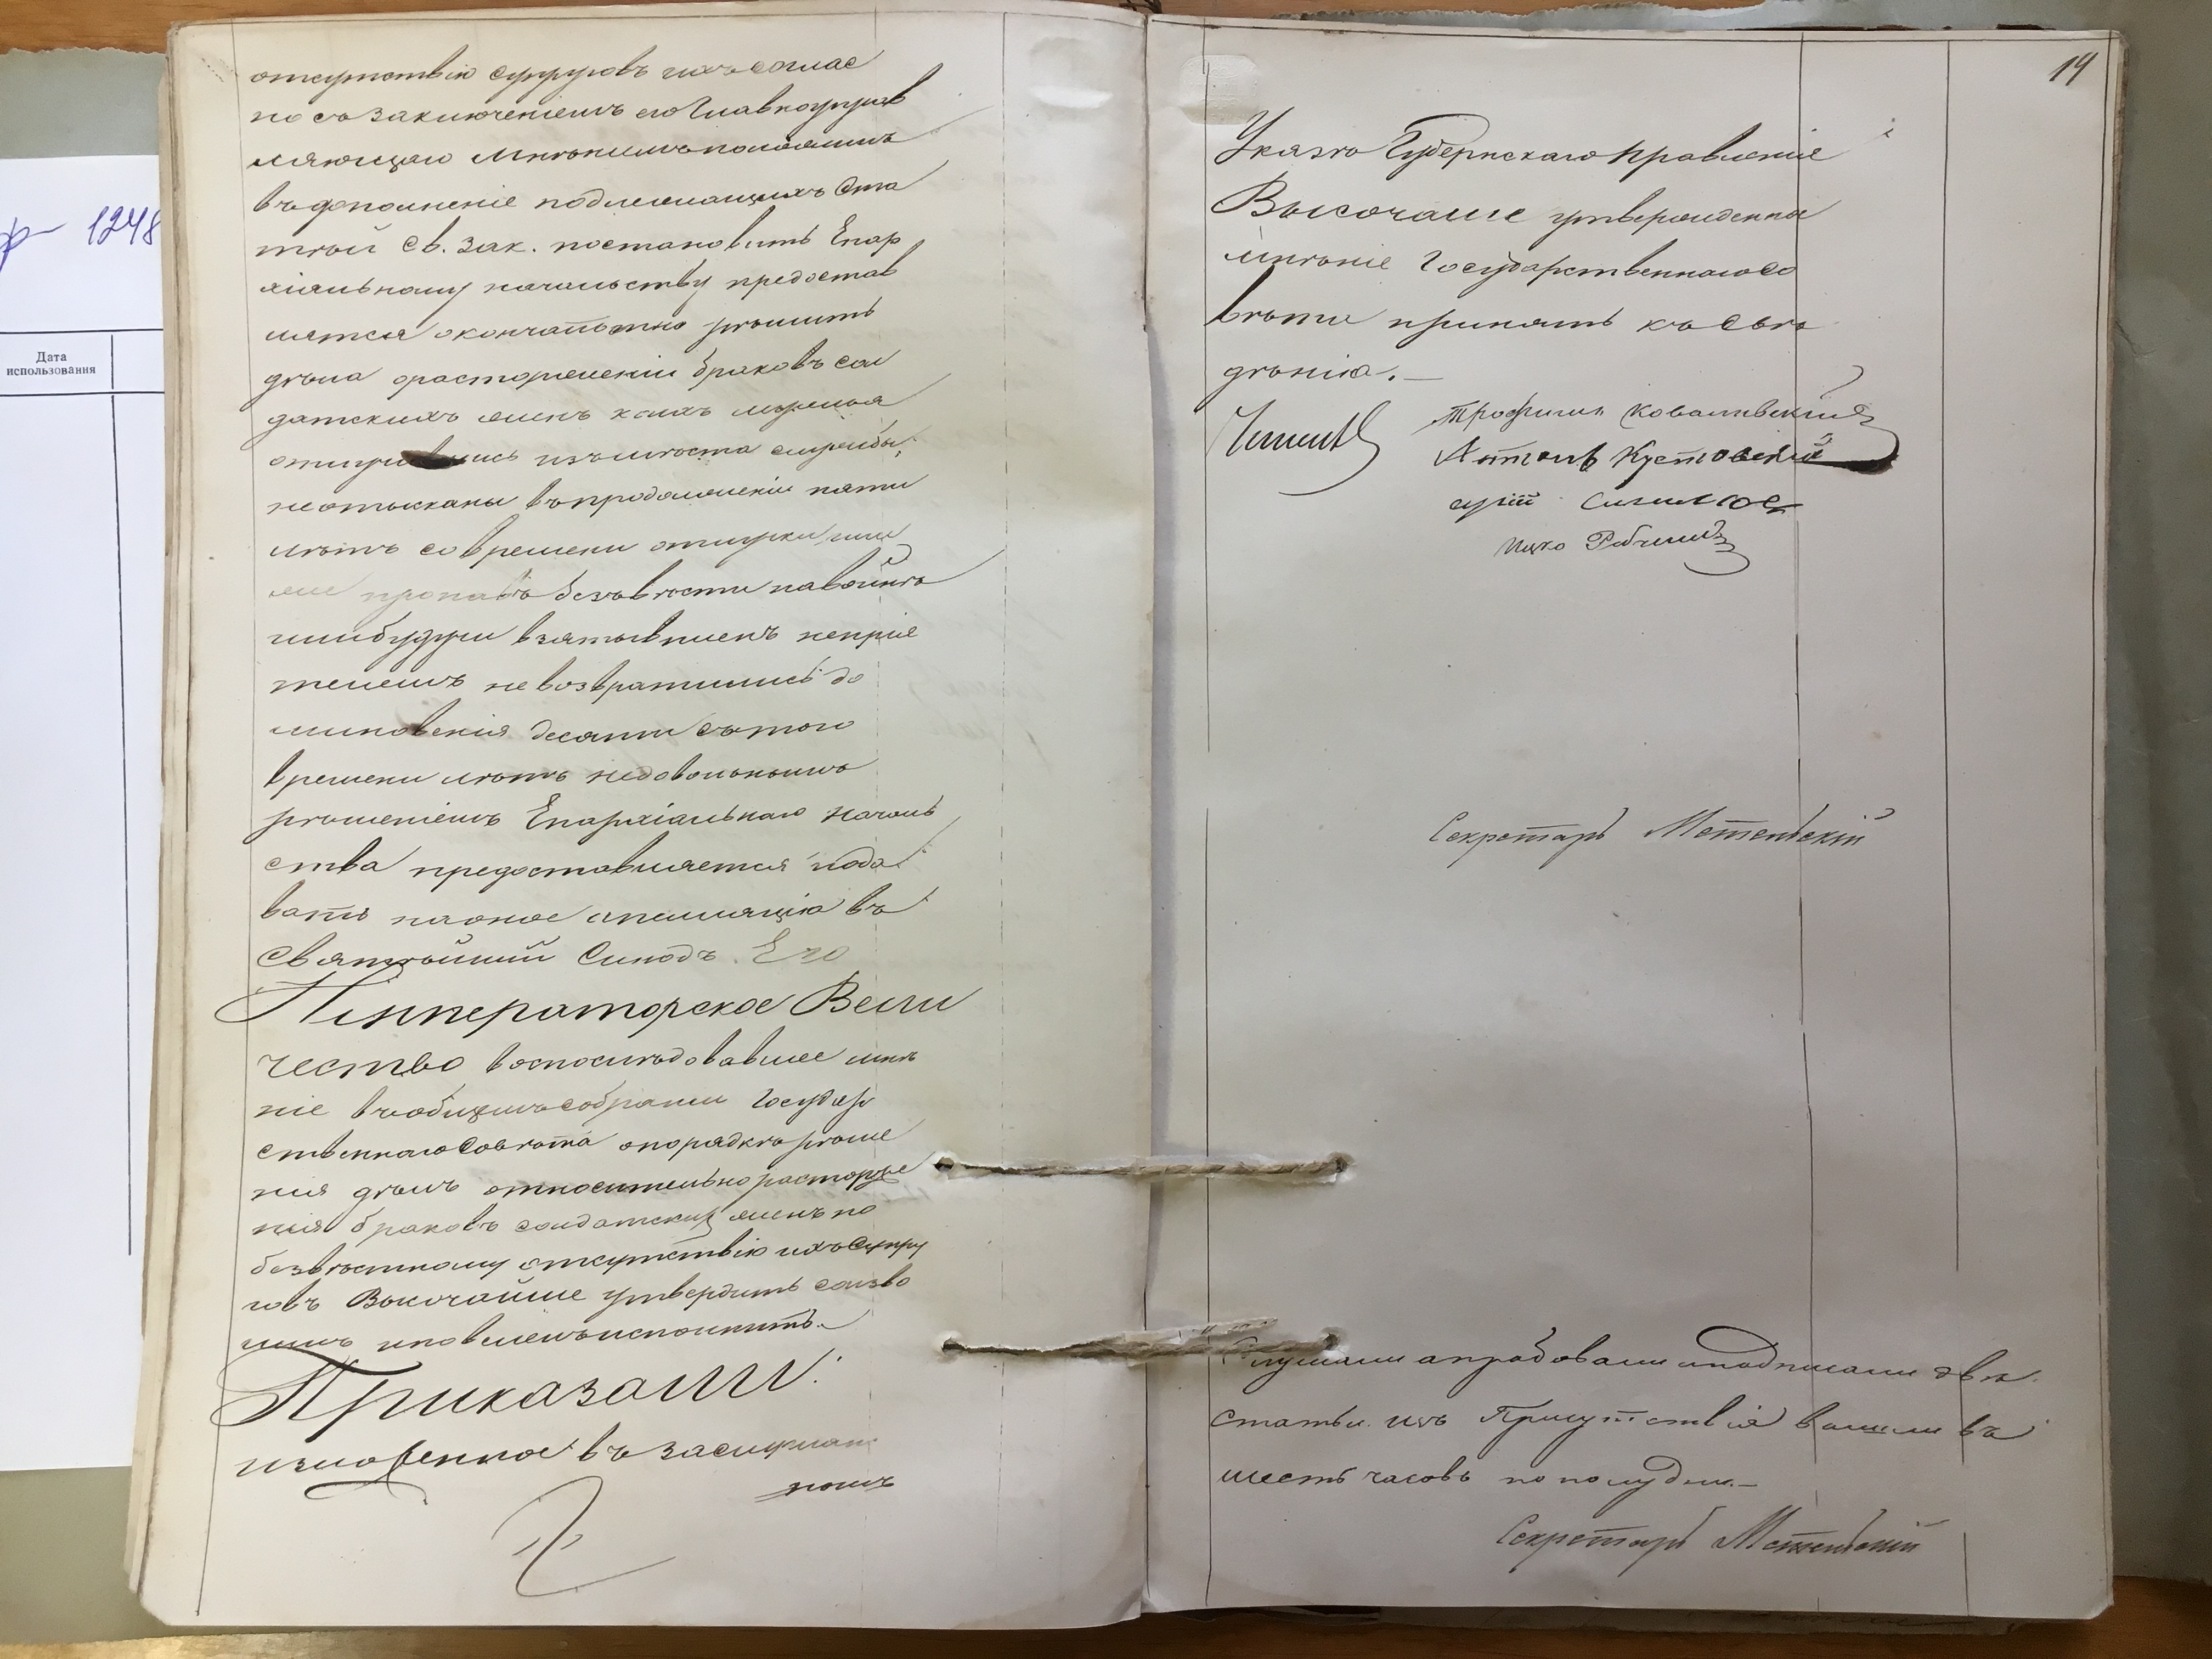 1248
Дата
использования
отсутствію супруговъ ихъ соглас
но съ заключеніемъ его Главноуправ
ляющаго мнѣніемъ положилъ
въ дополненіе подлежащихъ Ста
тьей Св. Зак. постановить Епар
хіальному начальству предостав
ляется окончательно рѣшить
дѣла о расторженіи браковъ сол
датскихъ женъ коихъ мужья
отлучившись изъ мѣста службы
не отысканы въ продолженіи пяти
лѣтъ со времени отлучки или
же пропавъ безъ вѣсти на войнѣ
или будучи взяты въ плѣнъ непріе
телемъ не возвратились до
минованія десяти съ того
времени лѣтъ недовольнымъ
рѣшеніемъ Епархіальнаго началь
ства предоставляется пода
вать на оное апелляцію въ
Святѣйшій Синодъ. Его
Императорское Вели
чество воспослѣдовавшее мнѣ
ніе въ общемъ собраніи Государ
ственнаго Совѣта о порядкѣ рѣше
нія дѣлъ относительно расторже
нія браковъ солдатскихъ женъ по
безвѣстному отсутствію ихъ супру
говъ Высочайше утвердить соизво
лилъ и повелѣлъ исполнить.
Приказали:
изложенное въ заслушан
номъ
14
Указѣ Губернскаго Правленія
Высочайше утвержденное
мнѣніе Государственнаго Со
вѣта принять къ свѣ
дѣнію.
Трофимъ Ковалевскій
Антонъ Кустовскій
Ицко
Секретарь
Слушали апробовали и подписали двѣ
статьи изъ Присутствія вышли въ
шесть часовъ по полудни.
Секретарь